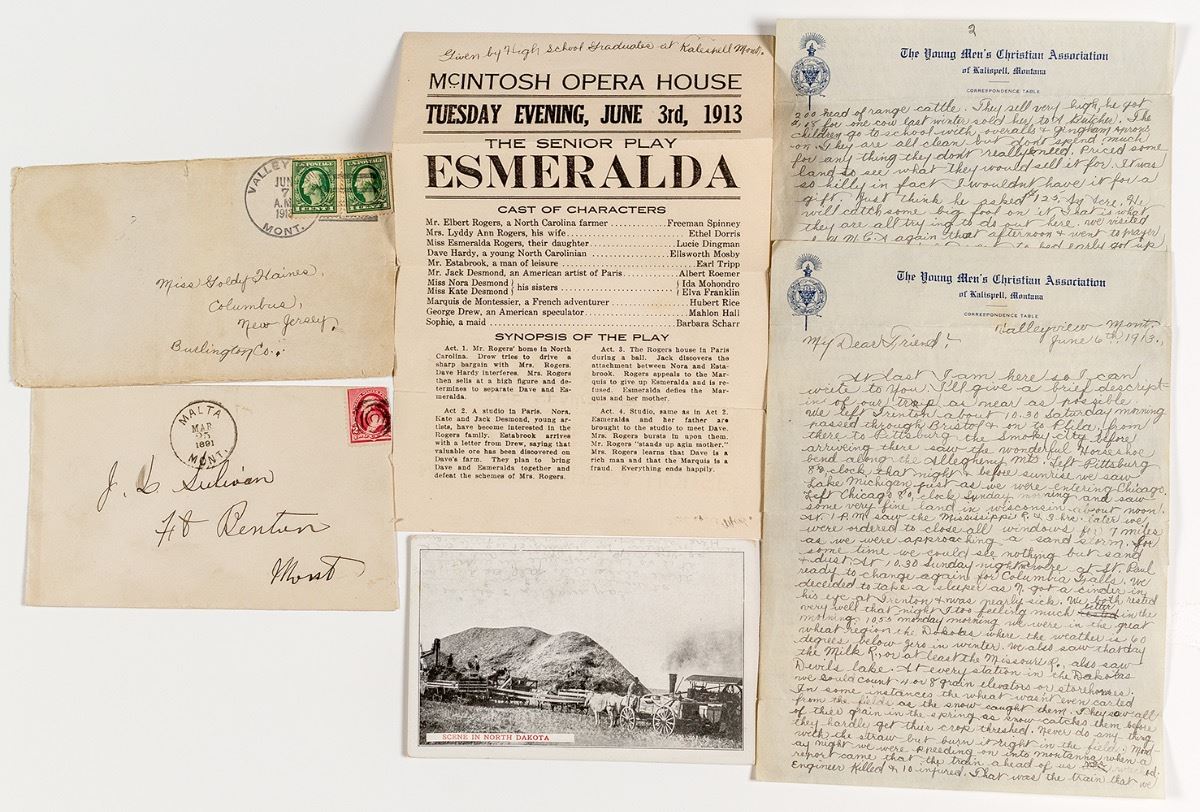 VALLEY
JUN
7
A.M.
1913
MONT.
U.S. POSTAGE
1 CENT 1
1 CENT 1
Miss Goldy Haines,
Columbus,
New Jersey.
Burlington Co.
MALTA
MAR
25
1891
MONT.
J. L. Sulivan
Ft Benton
Mont
Given by High School Graduates at Kalispell Mont.
MCINTOSH OPERA HOUSE
TUESDAY EVENING, JUNE 3rd, 1913
THE SENIOR PLAY
ESMERALDA
CAST OF CHARACTERS
Mr. Elbert Rogers, a North Carolina farmer Freeman Spinney
Mrs. Lyddy Ann Rogers, his wife Ethel Dorris
Miss Esmeralda Rogers, their daughter Lucie Dingman
Dave Hardy, a young North Carolinian Ellsworth Mosby
Mr. Estabrook, a man of leisure Earl Tripp
Mr. Jack Desmond, an American artist of Paris Albert Roemer
Miss Nora Desmond } his sisters { Ida Mohondro
Miss Kate Desmond } { Elva Franklin
Marquis de Montessier, a French adventurer Hubert Rice
George Drew, an American speculator Mahlon Hall
Sophie, a maid Barbara Scharr
SYNOPSIS OF THE PLAY
Act. 1. Mr. Rogers' home in North
Carolina. Drew tries to drive a
sharp bargain with Mrs. Rogers.
Dave Hardy interferes. Mrs. Rogers
then sells at a high figure and de-
termines to separate Dave and Es-
meralda.
Act 2. A studio in Paris. Nora,
Kate and Jack Desmond, young ar-
tists, have become interested in the
Rogers family. Estabrook arrives
with a letter from Drew, saying that
valuable ore has been discovered on
Dave's farm. They plan to bring
Dave and Esmeralda together and
defeat the schemes of Mrs. Rogers.
Act. 3. The Rogers house in Paris
during a ball. Jack discovers the
attachment between Nora and Esta-
brook. Rogers appeals to the Mar-
quis to give up Esmeralda and is re-
fused. Esmeralda defies the Mar-
quis and her mother.
Act. 4. Studio, same as in Act 2.
Esmeralda and her father are
brought to the studio to meet Dave.
Mrs. Rogers bursts in upon them.
Mr. Rogers "stands up agin mother."
Mrs. Rogers learns that Dave is a
rich man and that the Marquis is a
fraud. Everything ends happily.
SCENE IN NORTH DAKOTA
2
The Young Men's Christian Association
of Kalispell, Montana
CORRESPONDENCE TABLE
200 head of range cattle. They sell very high, he got
for one cow last winter sold her to a Butcher. The
children go to school with overalls & gingham aprons
on. They are all clean but don't spend much
for any thing they don't really need. Priced some
land to see what they would sell it for. It was
so hilly in fact I wouldn't have it for a
gift. Just think he asked $125. He
will catch some big fool on it that is what
they are all trying to do out here. we visited
Y.M.C.A again that afternoon & went to prayer
to bed early got up
The Young Men's Christian Association
of Kalispell, Montana
CORRESPONDENCE TABLE
Valleyview Mont.
June 6th, 1913.
My Dear Friend:-
At last I am here so I can
write to you. I'll give a brief descript-
ion of our trip as near as possible.
We left Trenton about 10.30 Saturday morning
passed through Bristol & on to Phila. from
there to Pittsburg the Smoky city before
arriving there saw the wonderful Horseshoe
bend along the Allegheny Mts. Left Pittsburg
8 o,clock that night & before sunrise we saw
Lake Michigan just as we were entering Chicago.
Left Chicago 8 o,clock Sunday morning and saw
some very fine land in wisconsin about noon.
At 1 P.M. saw the Mississippi R. & 3 hrs. later we
were ordered to close all windows for 7 miles
as we were approaching a sand storm. for
some time we could see nothing but sand
& dust. At 10.30 Sunday night were at St. Paul
ready to change again for Columbia Falls. We
decided to take a sleeper as I got a cinder in
his eye at Trenton & was nearly sick. We both rested
very well that night I too feeling much better in the
morning. 10.55 monday morning we were in the great
wheat region the Dakotas where the weather is 60
degrees below zero in winter. We also saw that day
the Milk R., or at least the Missouri R., also saw
Devils lake. At every station in the Dakotas
we could count 4 or 8 grain elevators or storehouses.
In some instances the wheat wasn't even carted
from the fields as the snow caught them. They sow all
of their grain in the spring so snow catches them before
they hardly get their crop threshed. Never do any thing
with the straw but burn it right in the field. Mond-
ay night we were speeding on into montana when a
report came that the train ahead of us was wrecked.
Engineer killed & 10 injured. That was the train that we